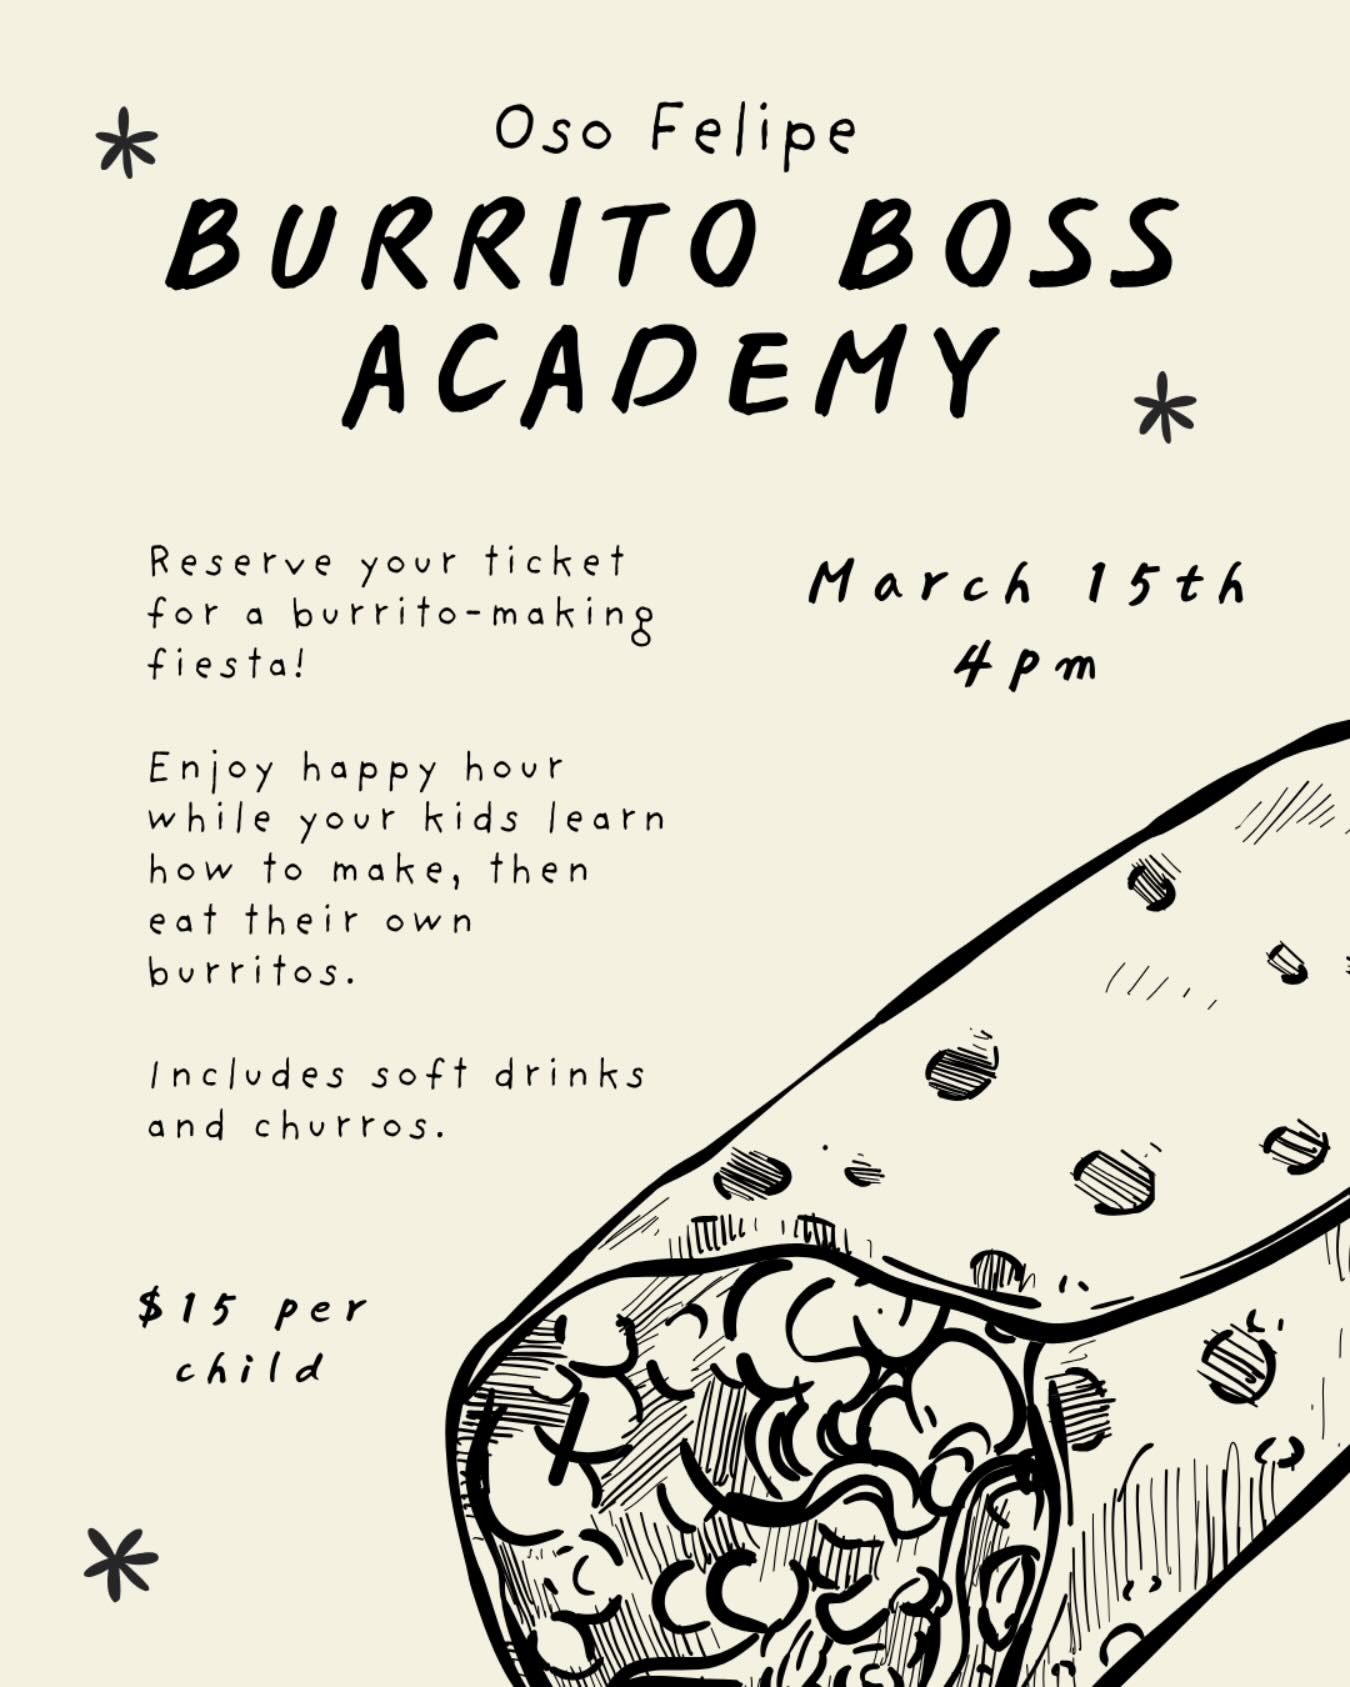 Oso Felipe
BURRITO BOSS
ACADEMY
Reserve your ticket
for a burrito-making
fiesta!
March 15th
4pm
Enjoy happy hour
while your kids learn
how to make, then
eat their own
burritos.
Includes soft drinks
and churros.
$15 per
child